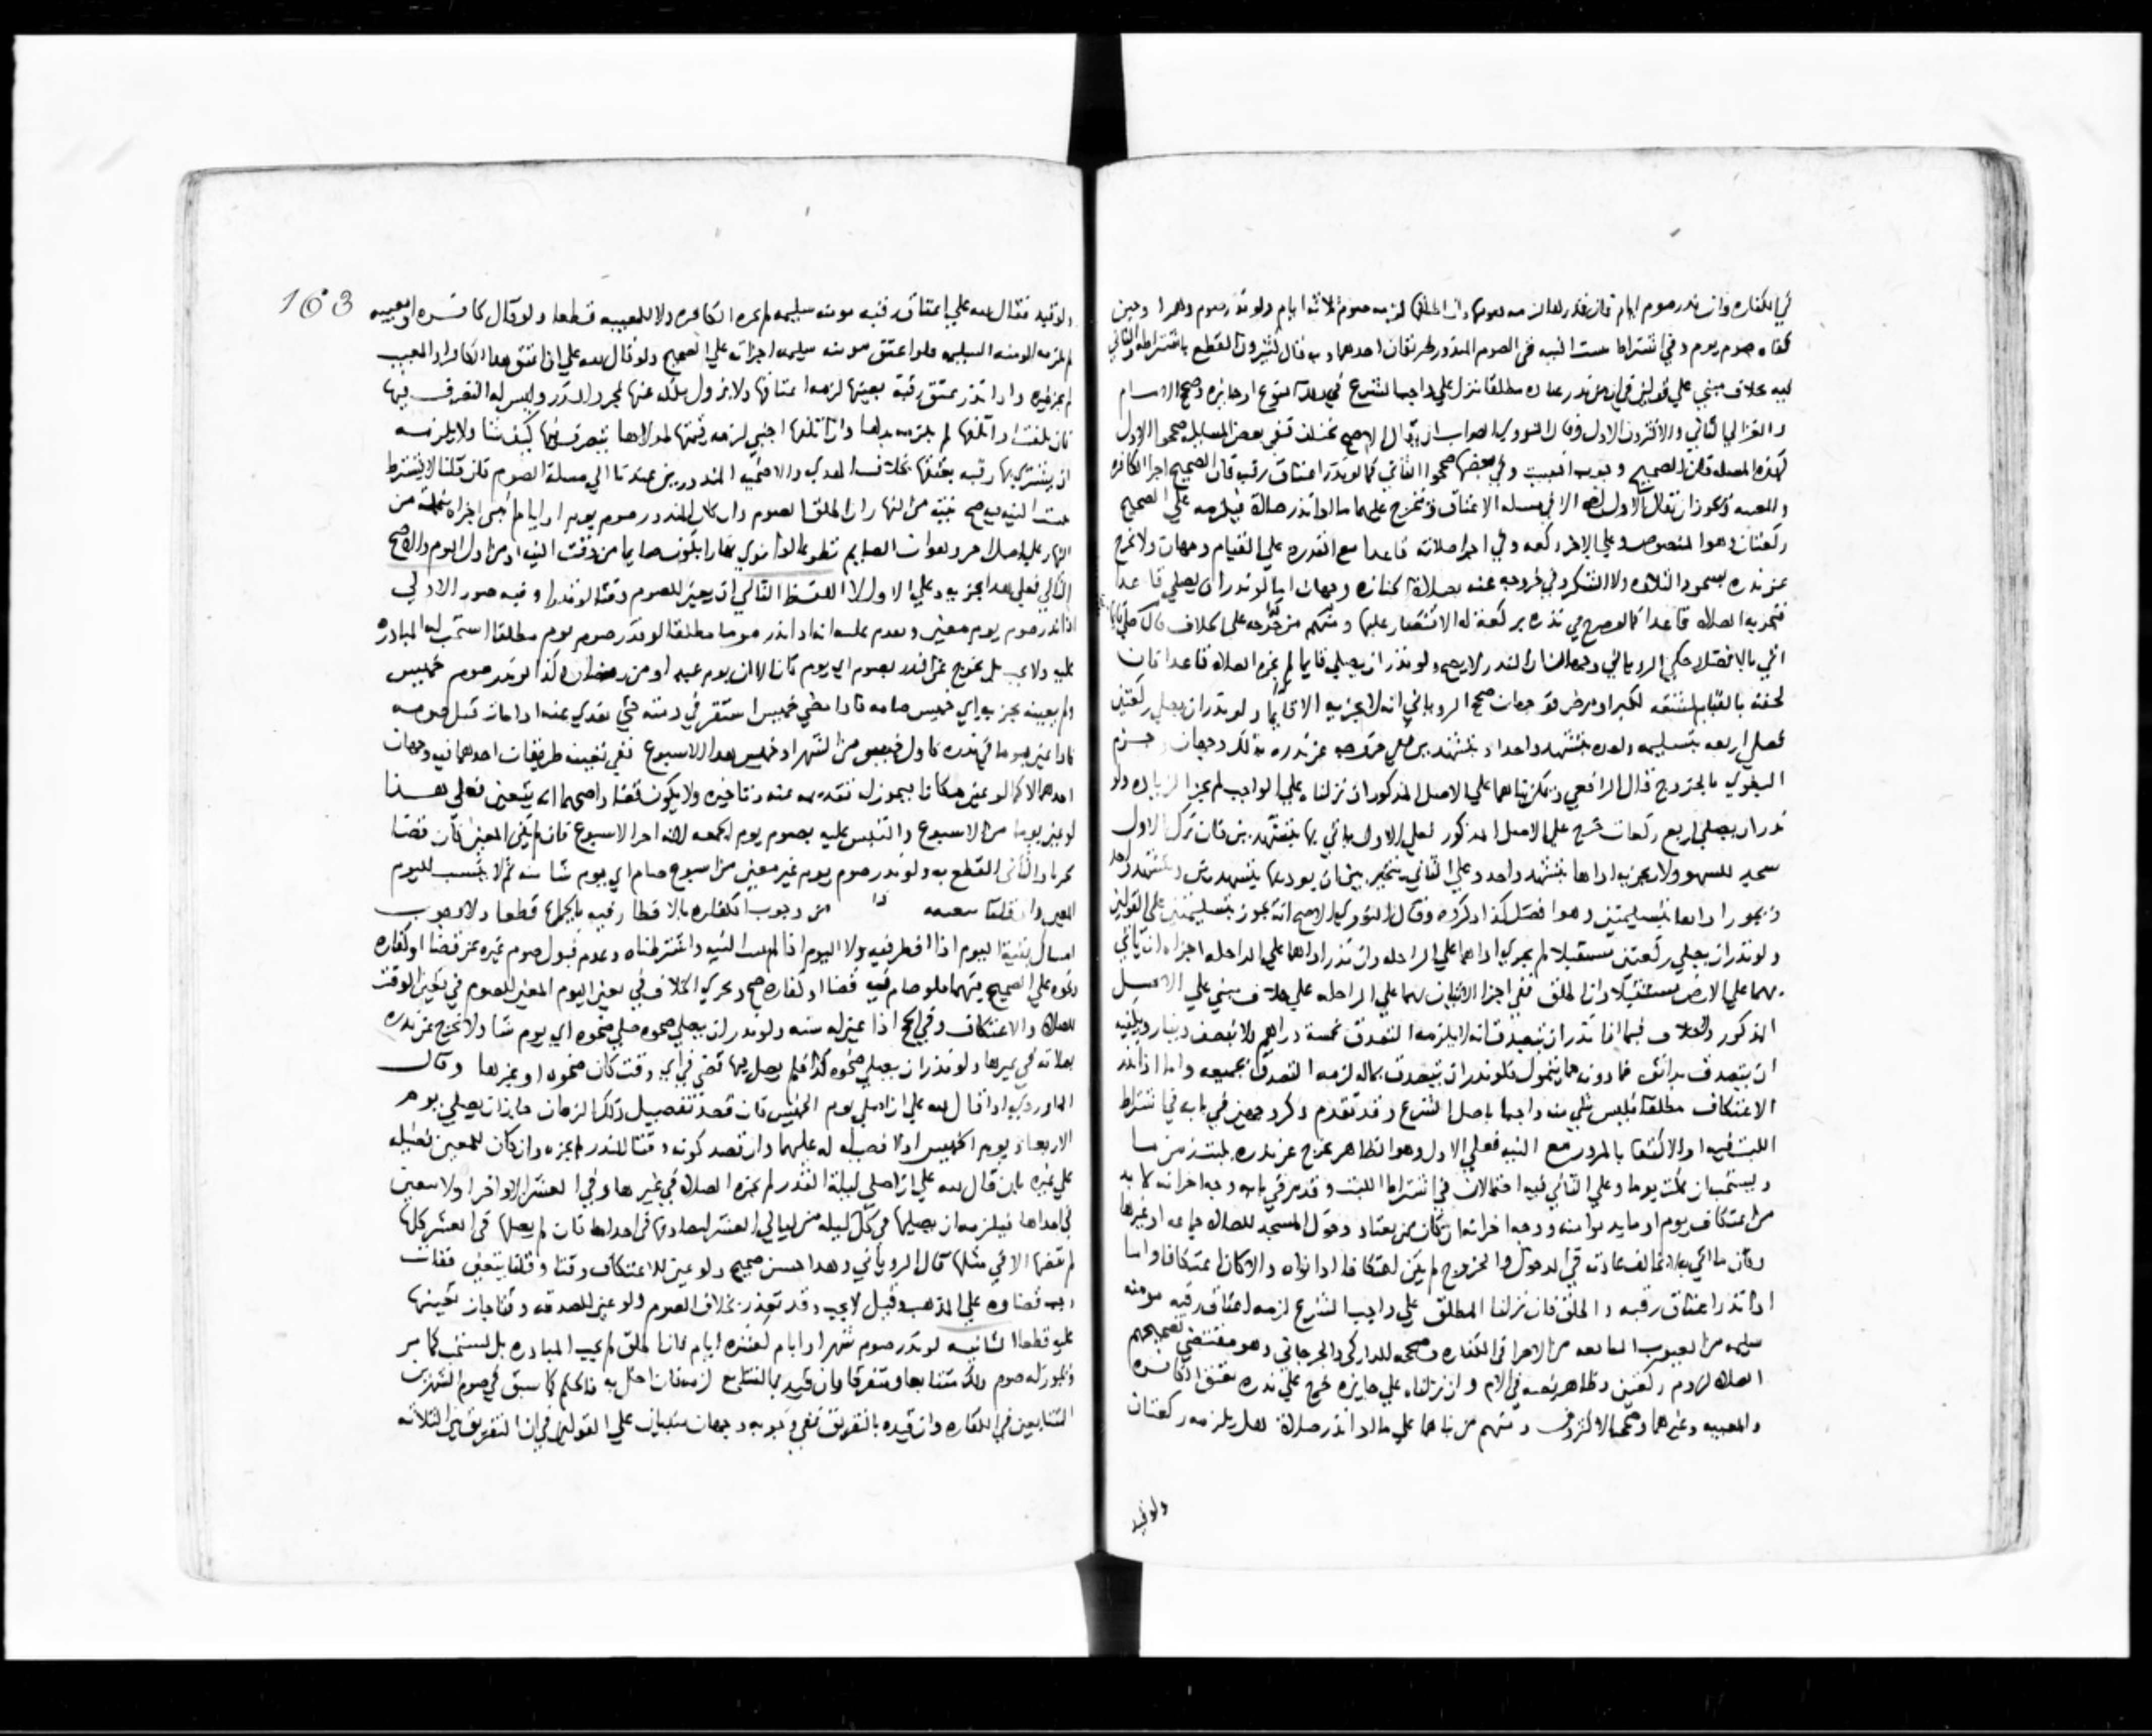 في الكفاره وان نذر صوم ايام فان قدرها لزمه صومها وان اطلق لزمه صوم ثلاثه ايام ولو نذر صوم دهرا او حين
كفاه صوم يوم وفي اشتراط تبييت النيه في الصوم المنذور طريقان احدهما وبه قال كثيرون القطع باشتراطه والثاني
فيه خلاف مبني علي قولين في ان من نذر عباده مطلقا تنزل علي واجب الشرع
والغزالي الثاني والاكثرون الاول وقال النووي الصواب ان يقال الاصح مختلف ففي بعض المسايل صححوا الاول
كهذه المسله فان الصحيح وجوب التبييت وفي بعضها صححوا الثاني كما لو نذر اعتاق رقبه فان الصحيح اجزا الكافره
والمعيبه الاول الا في مسله الاعتاق وتخرج عليهما ما لو نذر صلاة فيلزمه علي الصحيح
ركعتان وهو المنصوص وعلي الاخر ركعه وفي اجزا صلاته قاعدا مع القدره علي القيام وجهان ولا يخرج
عن نذره بسجود التلاوه ولا الشكر وفي خروجه عنه بصلاة الجنازه وجهان اما لو نذر ان يصلي قاعدا
فتجزيه الصلاه قاعدا كما لو صرح في نذره بركعة له الاقتصار عليها ومنهم من خرجه علي الخلاف فان صلي قايما
اتي بالافضل وحكي الروياني وجها ان النذر لا يصح ولو نذر ان يصلي قايما لم تجزه الصلاه قاعدا فان
لحقته بالقيام مشقه لكبر او مرض فوجهان صحح الروياني انه لا يجزيه الا قايما ولو نذر ان يصلي ركعتين
فصلي اربعه بتسليمه واحده بتشهد واحد او بتشهدين ففي خروجه عن نذره بذلك وجهان وجزم
البغوي بالخروج قال الرافعي ويمكن بناهما علي الاصل المذكور ان نزلناه علي الواجب لم يجز الزياده ولو
نذر ان يصلي اربع ركعات خرج علي الاصل المذكور فعلي الاول ياتي بها بتشهدين فان ترك الاول
سجد للسهو ولا يجزيه اداها بتشهد واحد وعلي الثاني يتخير بين ان يوديها بتشهدين وبتشهد واحد
ويجوز اداها بتسليمتين وهو افضل كذا ذكروه وقال النووي الاصح انه يجوز بتسليمتين علي القولين
ولو نذر ان يصلي ركعتين مستقبلا لم يجزه اداهما علي الراحله وان نذر اداهما علي الراحله اجزاه ان ياتي
بهما علي الارض مستقبلا وان اطلق ففي اجزا الاتيان بهما علي الراحله علي خلاف مبني علي الاصل
المذكور ولا خلاف فيما اذا نذر ان يتصدق انه لا يلزمه التصدق بخمسة دراهم ولا بنصف دينار ويكفيه
ان يتصدق بدانق فما دونه مما يتمول فلو نذر ان يتصدق بماله لزمه التصدق بجميعه واما اذا نذر
الاعتكاف مطلقا فليس شي منه واجبا باصل الشرع وقد تقدم ذكر وجهين في بابه في اشتراط
اللبث فيه او الاكتفا بالمرور مع النيه فعلي الاول وهو الظاهر يخرج عن نذره بلبث زمن ما
ويستحب ان يمكث يوما وعلي الثاني فيه احتمالان في اشتراط اللبث وقد مر في بابه وجه اخر انه لا بد
من اعتكاف يوم او ما يدنوا منه ووجه اخر انه ان كان من يعتاد دخول المسجد للصلاه جماعه او غيرها
وكان ما اتي به لا يخالف عادته في الدخول والخروج لم يكن اعتكافا اذا نواه والا كان اعتكافا واما
اذا نذر اعتاق رقبه واطلق فان نزلنا المطلق علي واجب الشرع لزمه اعتاق رقبه مومنه
سليمه من العيوب المانعه من الاجزا في الكفاره وصححه الداركي والجرجاني وهو مقتضي تصحيحهم
الصلاه لزوم ركعتين وظاهر نصه في الام وان نزلناه علي جايزه خرج علي نذره بعتق الكافره
والمعيبه وغيرهما وصححه الاكثرون ومنهم من بناهما علي ما لو نذر صلاة هل يلزمه ركعتان
ولو قيد
163
ولو قيد فقال لله علي اعتاق رقبه مومنه سليمه لم تجزه الكافره ولا المعيبه قطعا ولو قال كافره او معيبه
لم تلزمه المومنه السليمه فلو اعتق مومنه سليمه اجزات علي الصحيح ولو قال لله علي ان اعتق هذا الكافر او المعيب
لم يجز غيره واذا نذر عتق رقبة بعينها لزمه اعتاقها ولا يزول ملكه عنها بمجرد النذر وليس له التصرف فيها
فان تلفت او اتلفها لم يلزمه بدلها وان اتلفها اجنبي لزمه قيمتها لمولاها يتصرف فيها كيف شا ولا يلزمه
ان يشتري بها رقبه يعتقها بخلاف الهدي والاضحيه المنذورين عدنا الي مسلة الصوم فان قلنا لا يشترط
تبييت النيه فيصح بنيه من النهار ان اطلق الصوم وان كان المنذور صوم يوم او ايام
النهار علي اصل اخر وهو ان الصايم تطوعا اذا نوي نهارا هل يكون صايما من وقت النيه او من اول اليوم والاصح
الثاني فعلي هذا يجزيه وعلي الاول لا اللفظ الثاني ان يعين للصوم وقتا وفيه صور الاولي
اذا نذر صوم يوم معين مطلقا لو نذر صوم يوم مطلقا استحب له المبادره
عليه ولا يجب بل يخرج عن النذر بصوم اي يوم كان الا ان يوم عيد او من رمضان وكذا لو نذر صوم خميس
ولم يعينه يجزيه اي خميس صامه فاذا مضي خميس استقر في ذمته حتي يفدي عنه اذا مات قبل صومه
فاذا عين يوما في نذره كاول خميس من الشهر او خميس هذا الاسبوع ففي تعيينه طريقان احدهما فيه وجهان
احدهما لا كما لو عين مكانا فيجوز له تقديمه عنه وتاخيره ولا يكون قضا واصحهما انه يتعين فعلي هذا
لو عين يوما من الاسبوع والتبس عليه يصوم يوم الجمعه لانه اخر الاسبوع فان لم يكن المعين كان قضا
والثاني القطع به ولو نذر صوم يوم غير معين من اسبوع صام اي يوم شا منه ثم لا يثبت لليوم
المعين وان قلنا بتعينه من وجوب الكفاره بالافطار فيه بالجماع قطعا ولا وجوب
امساك بقية اليوم اذا افطر فيه ولا اليوم اذا لم يبيت النيه واشترطناه وعدم قبول صوم غيره عن قضا او كفاره
ونحوه علي الصحيح فيهما فلو صام فيه قضا او كفاره صح ويجري الخلاف في تعين اليوم المعين للصوم في تعين الوقت
للصلاه والاعتكاف وفي الحج اذا عين له سنه ولو نذر ان يصلي ضحوه صلي ضحوه اي يوم شا ولا يخرج عن نذره
بصلاته في غيرها ولو نذر ان يصلي ضحوه كذا فلم يصل فيها قضي في اي وقت كان ضحوه او غيرها وقال
الماوردي اذا قال لله علي ان اصلي يوم الخميس فان قصد تفضيل ذلك الزمان جاز ان يصلي يوم
الاربعا ويوم الخميس اولا فضيله له عليهما وان قصد كونه وقتا للنذر لم يجزه وان كان للمعين فضيله
علي غيره بان قال لله علي ان اصلي ليلة القدر لم تجزه الصلاه في غيرها وفي العشر الاواخر اولا تتعين
في احداها فيلزمه ان يصليها في كل ليله من ليالي العشر ليصادفها في احداها فان لم يصلها في العشر كلها
لم تقضها الا في مثلها قال الروياني وهذا حسن صحيح ولو عين للاعتكاف وقتا وقلنا يتعين ففات
وجب قضاوه علي المذهب وقيل لا يجب وقد تعذر بخلاف الصوم ولو عين للصدقه وقتا جاز تعيينها
عليه قطعا الثانيه لو نذر صوم شهر او ايام كعشره ايام فان اطلق لم تجب المبادره بل تستحب كما مر
ويجوز له صوم ذلك متتابعا ومتفرقا وان قيد بالتتابع لزمه فان اخل به فالحكم كما سبق في صوم الشهرين
المتتابعين في الكفاره وان قيده بالتفريق ففي وجوبه وجهان مبنيان علي القولين في ان التفريق بين الثلاثه